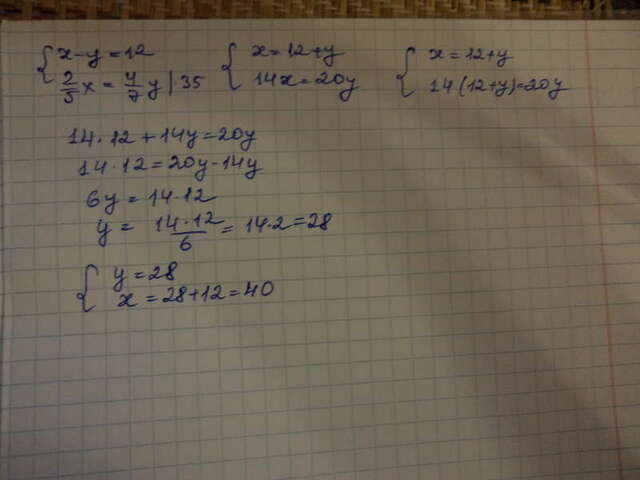 { x - y = 12
2/5 x = 4/7 y | 35
{ x = 12 + y
14x = 20y
{ x = 12 + y
14(12+y) = 20y
14 · 12 + 14y = 20y
14 · 12 = 20y - 14y
6y = 14 · 12
y = 14 · 12 / 6 = 14 · 2 = 28
{ y = 28
x = 28 + 12 = 40